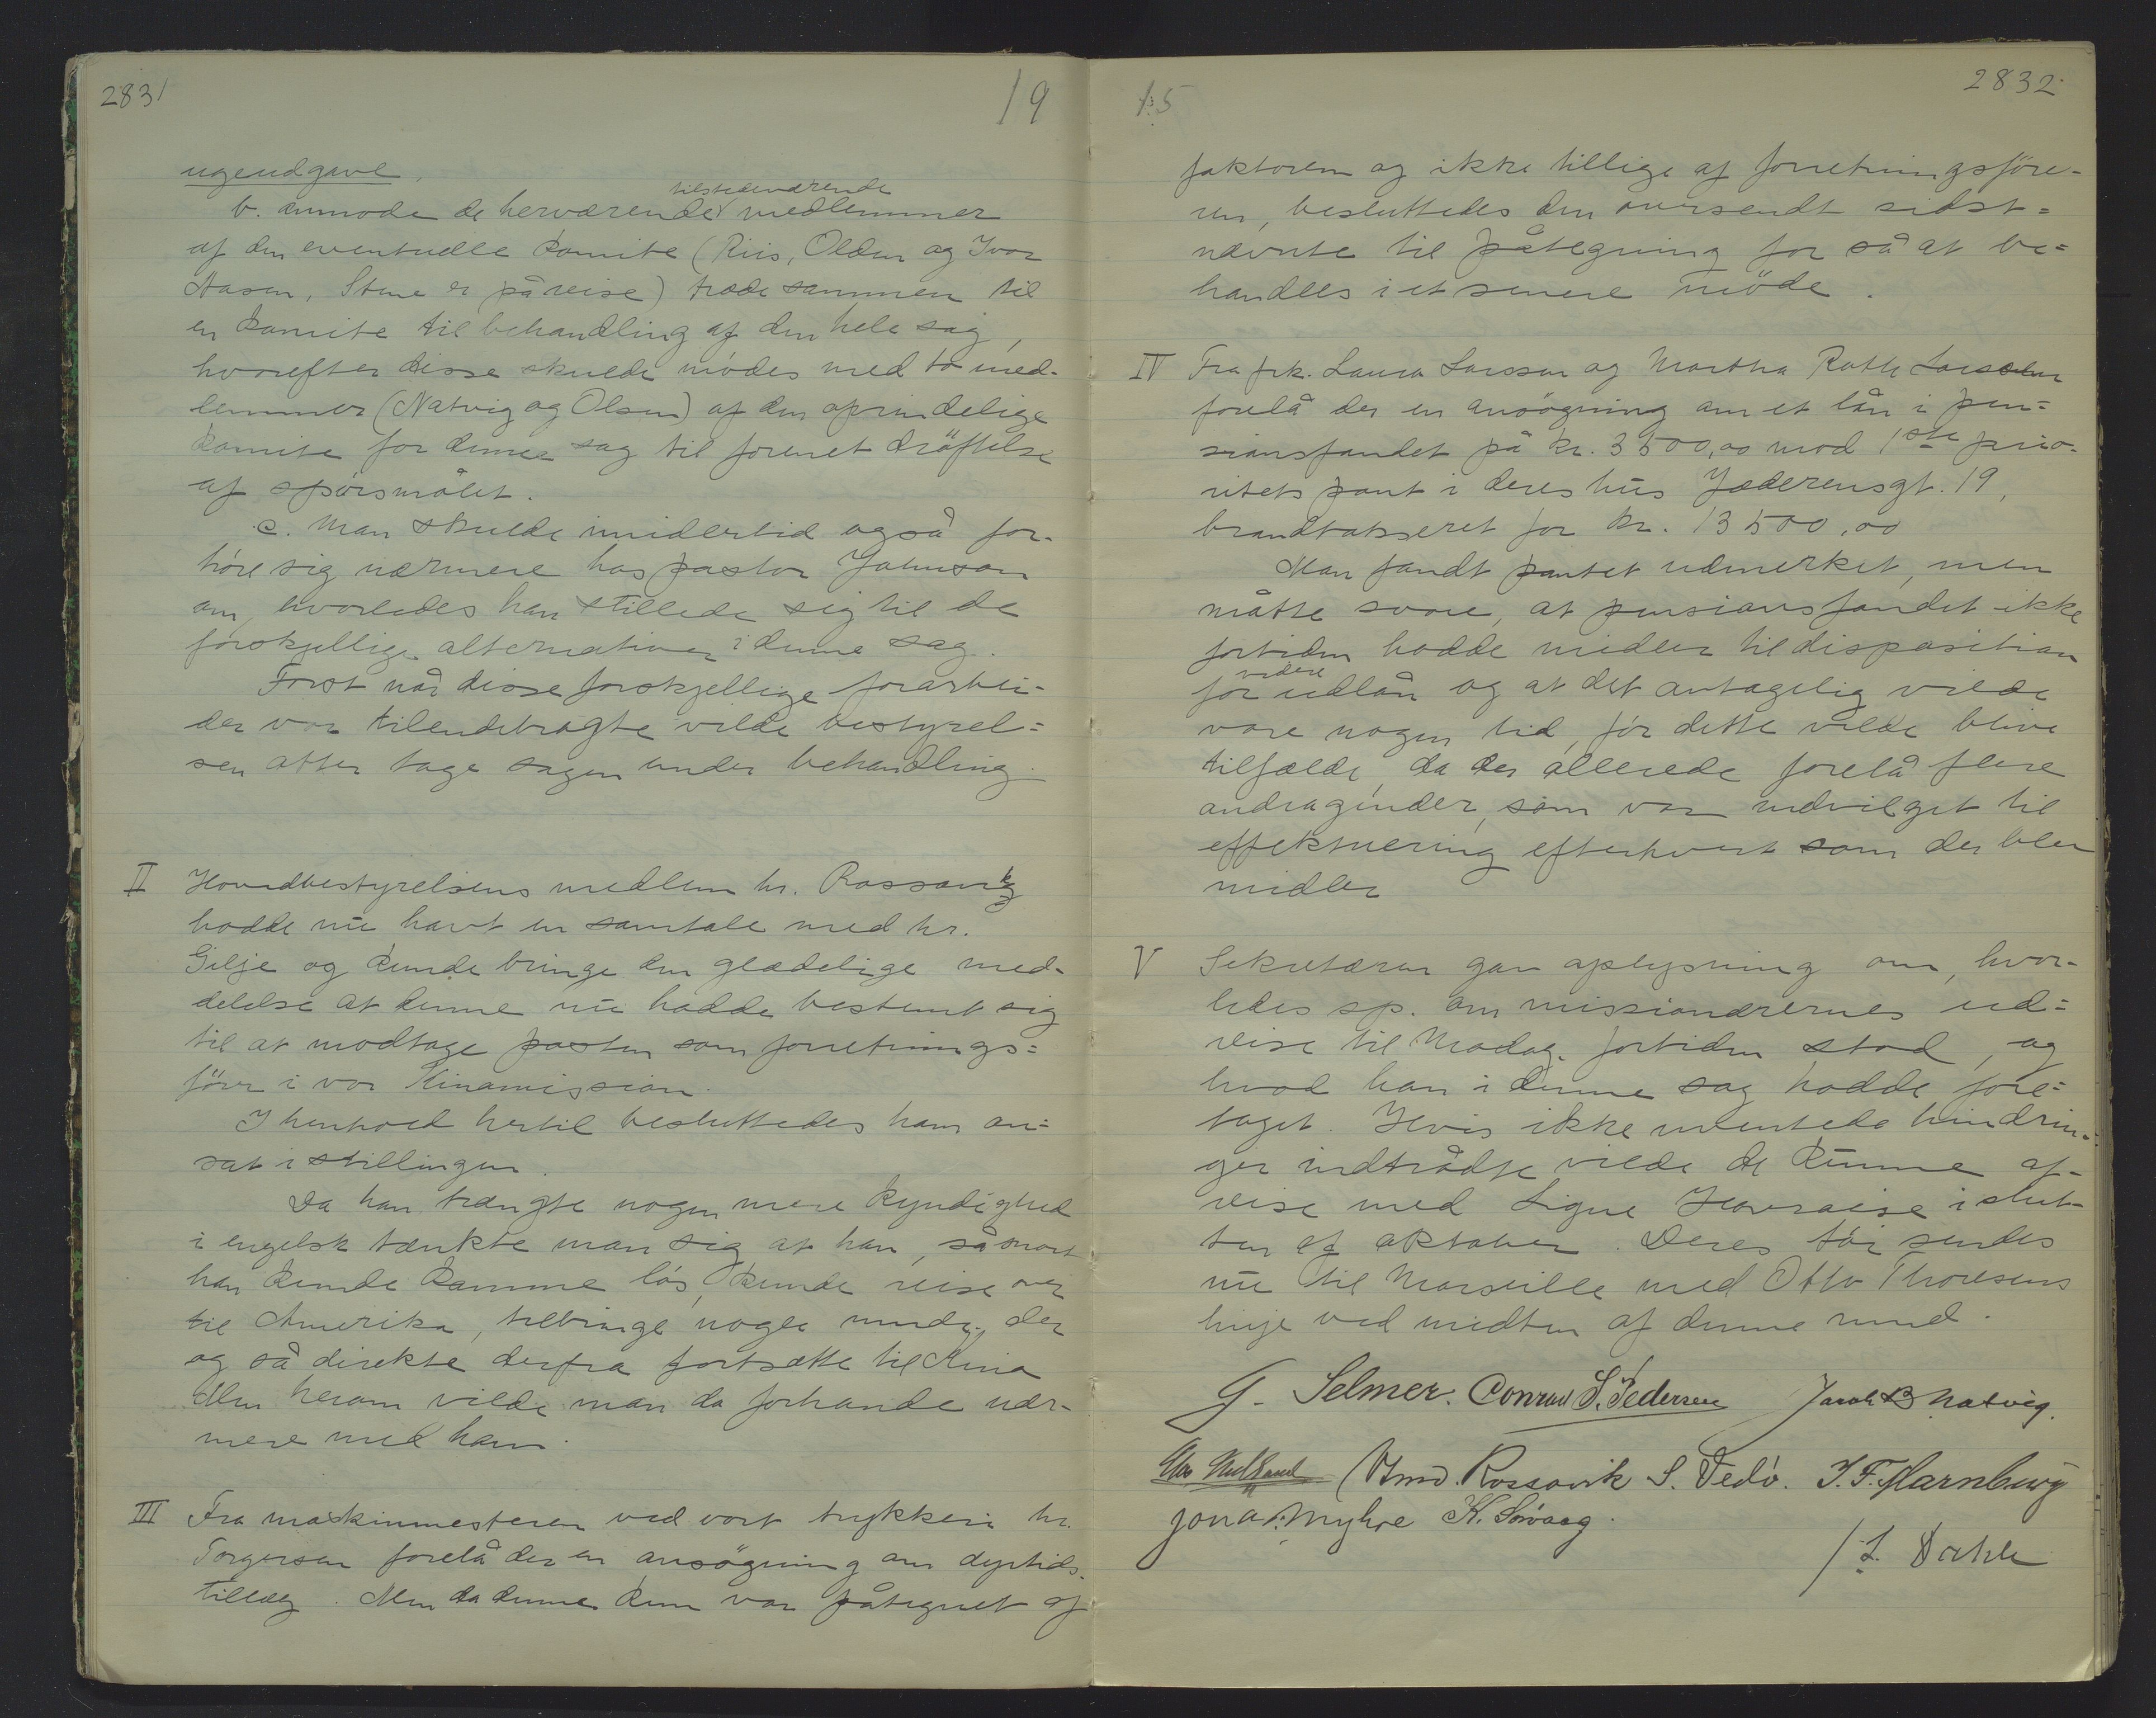 2831
19
ugeudgave.
b. anmode de herværende tilstedeværende medlemmer
af den eventuelle komite (Riis, Olden og Ivar
Aasen, Stene er på reise) træde sammen til
en komite til behandling af den hele sag,
hvorefter disse skulde mödes med to med-
lemmer (Natvig og Olsen) af den oprindelige
komite for denne sag til forenet dröftelse
af spörsmålet.
c. Man skulde imidlertid også for-
höre sig nærmere hos pastor Johnson
om, hvorledes han stillede sig til de
forskjellige alternativer i denne sag.
Först når disse forskjellige forarbei-
der var tilendebragte vilde bestyrel=
sen atter tage sagen under behandling.
II Hovedbestyrelsens medlem hr. Rossavik
hadde nu havt en samtale med hr.
Gilje og kunde bringe den glædelige med-
delelse at denne nu hadde bestemt sig
til at modtage posten som forretnings=
förer i vor Kinamission.
I henhold hertil besluttedes han an=
sat i stillingen.
Da han trængte nogen mere kyndighed
i engelsk tænkte man sig at han, så snart
han kunde komme lös, kunde reise over
til Amerika, tilbringe nogle mndr. der
og så direkte derfra fortsætte til Kina
Men herom vilde man da forhandle nær-
mere med ham.
III Fra maskinmesteren ved vort trykkeri hr.
Torgersen forelå der en ansögning om dyrtids-
tillæg. Men da denne kun var påtegnet af
15
2832
faktoren og ikke tillige af forretningsföre-
ren, besluttedes den oversendt sidst=
nævnte til påtegning for så at be=
handles i et senere möde.
IV Fra frk. Laura Larssen og Martha Rath Larssen
forelå der en ansögning om et lån i pen=
sionsfondet på kr. 3500,00 mod 1ste prio-
ritets pant i deres hus Jæderensgt. 19,
brandtakseret for kr. 13500,00
Man fandt pantet udmerket, men
måtte svare, at pensionsfondet ikke
fortiden hadde midler til disposition
for videre udlån og at det antagelig vilde
vare nogen tid, för dette vilde blive
tilfælde, da der allerede forelå flere
andragender, som var indvilget til
effektuering efterhvert som der blev
midler
V Sekretæren gav oplysning om, hvor-
ledes sp. om missionærernes ud=
reise til Madag. fortiden stod, og
hvad han i denne sag hadde fore=
taget. Hvis ikke uventede hindrin-
ger indtrådte vilde de kunne af-
reise med Ligne Havraise i slut-
ten af oktober. Deres töi sendes
nu til Marseille med Otto Thoresens
linje ved midten af denne mnd.
G. Selmer. Conrad S. Pedersen Jacob B Natvig.
Rossavik S. Vedö. J. F. Harnburg
Jonas Myhre K. Sörvaag.
/ L. Dahle